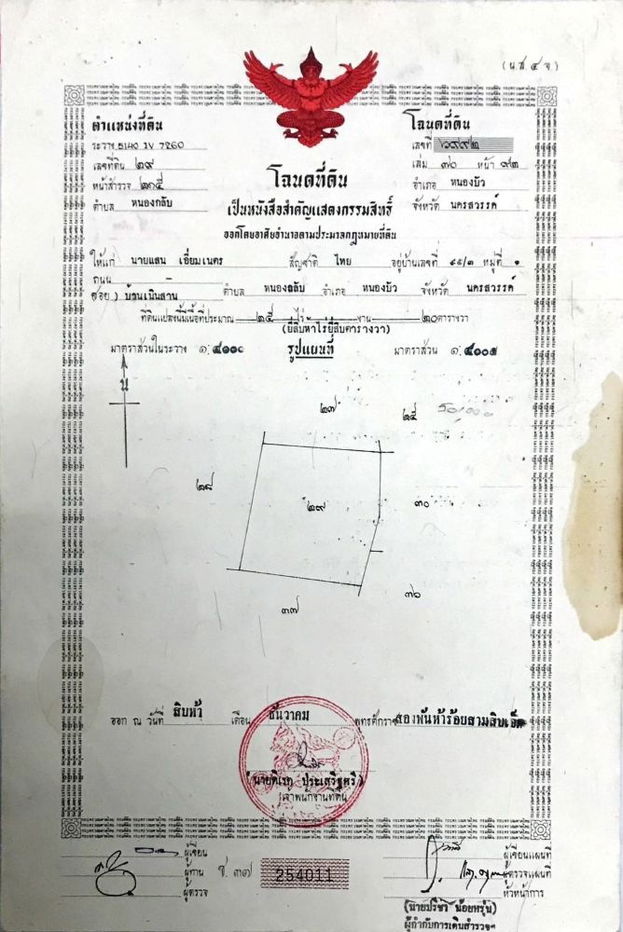 (น.ส. ๔ จ)
ตำแหน่งที่ดิน
ระวาง 5140 IV 7260
เลขที่ดิน ๒๙
หน้าสำรวจ ๒๑๕
ตำบล หนองกลับ
โฉนดที่ดิน
เลขที่
เล่ม ๓๖ หน้า ๙๒
อำเภอ หนองบัว
จังหวัด นครสวรรค์
โฉนดที่ดิน
เป็นหนังสือสำคัญแสดงกรรมสิทธิ์
ออกโดยอาศัยอำนาจตามประมวลกฎหมายที่ดิน
ให้แก่ นายแสน เอี่ยมเนตร สัญชาติ ไทย อยู่บ้านเลขที่ ๔๕/๓ หมู่ที่ ๑
ถนน
(ซอย) ตำบล หนองกลับ อำเภอ หนองบัว จังหวัด นครสวรรค์
ที่ดินแปลงนี้มีเนื้อที่ประมาณ ๒๕ ไร่ งาน ๒๐ ตารางวา
(ยี่สิบห้าไร่ยี่สิบตารางวา)
มาตราส่วนในระวาง ๑: ๔๐๐๐ รูปแผนที่ มาตราส่วน ๑:
น
๒๗ ๒๕
๒๘
๒๙
๓๐
๓๖
๓๗
ออก ณ วันที่ สิบห้า เดือน ธันวาคม พุทธศักราช สองพันห้าร้อยสามสิบเอ็ด
ประเสริฐศรี)
เจ้าพนักงานที่ดิน
ผู้เขียน
ผู้ทาน
ผู้ตรวจ
ช. ๓๗
254011
ผู้เขียนแผนที่
ผู้ตรวจแผนที่
หัวหน้าการ
(นายปรีชา น้อยหรุ่น)
ผู้กำกับการเดินสำรวจฯ